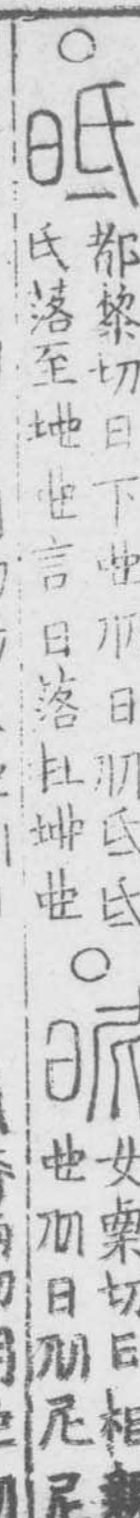 ○
昬
都黎切日下也从日从氐氐
氐落至地也言日落在地也
○
昵
女栗切日相親
也从日从尼尼